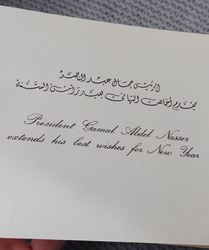 الرئيس جمال عبد الناصر
يقدم أخلص التهاني بعيد رأس السنة
President Gamal Abdel Nasser
extends his best wishes for New Year